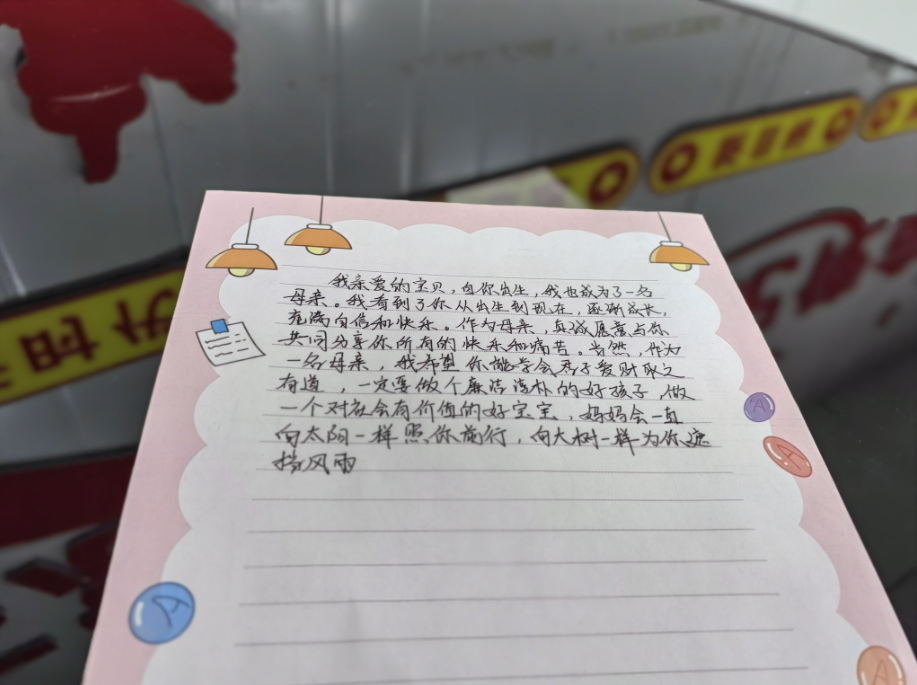 我亲爱的宝贝，自你出生，我也成为了一名
母亲。我看到了你从出生到现在，逐渐成长，
充满自信和快乐。作为母亲，真诚愿意与你
共同分享你所有的快乐和痛苦。当然，作为
一名母亲，我希望你能学会君子爱财取之
有道，一定要做个廉洁清朴的好孩子，做
一个对社会有价值的好宝宝，妈妈会一直
向太阳一样照你前行，向大树一样为你遮
挡风雨